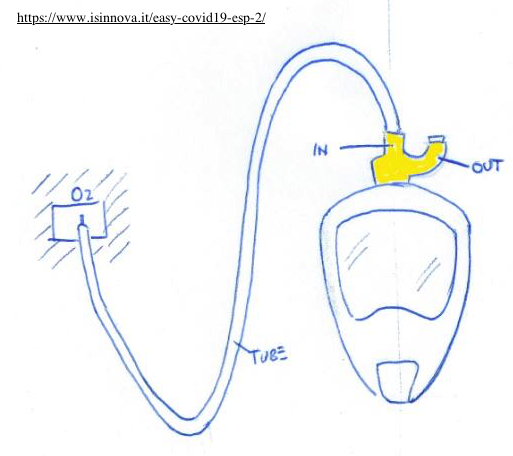 https://www.isinnova.it/easy-covid19-esp-2/
IN
OUT
O2
TUBE